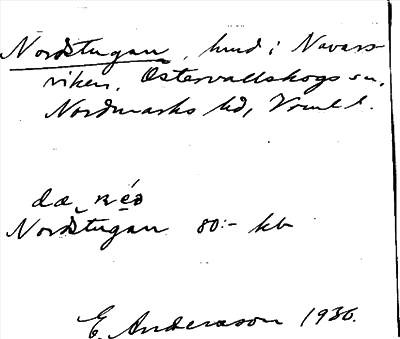 Nordstugan, hmd i Navars-
viken, Östervallskogs sn,
Nordmarks hd, Vrml l.
da né̱o
Nordstugan 80:- kb
E. Anderson 1936.